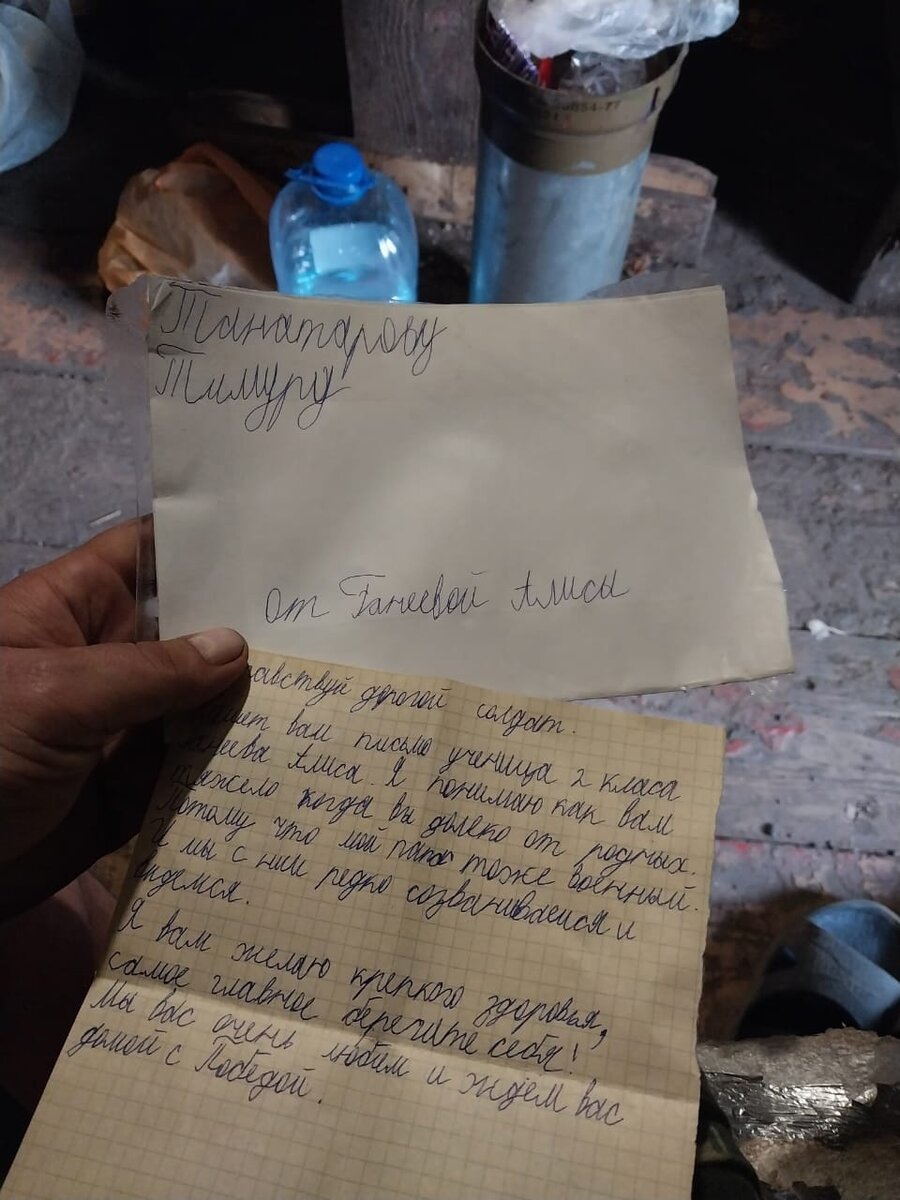 54-77
Танатарову
Тимуру
От Ганеевой Алисы
равствуй дорогой солдат.
Пишет вам письмо ученица 2 класа
Ганеева Алиса. Я понимаю как вам
тяжело когда вы далеко от родных.
Потому что мой папа тоже военный.
И мы с ним редко созваниваемся и
видемся.
Я вам желаю крепкого здоровья,
самое главное берегите себя!
Мы вас очень любем и ждём вас
домой с Победой.